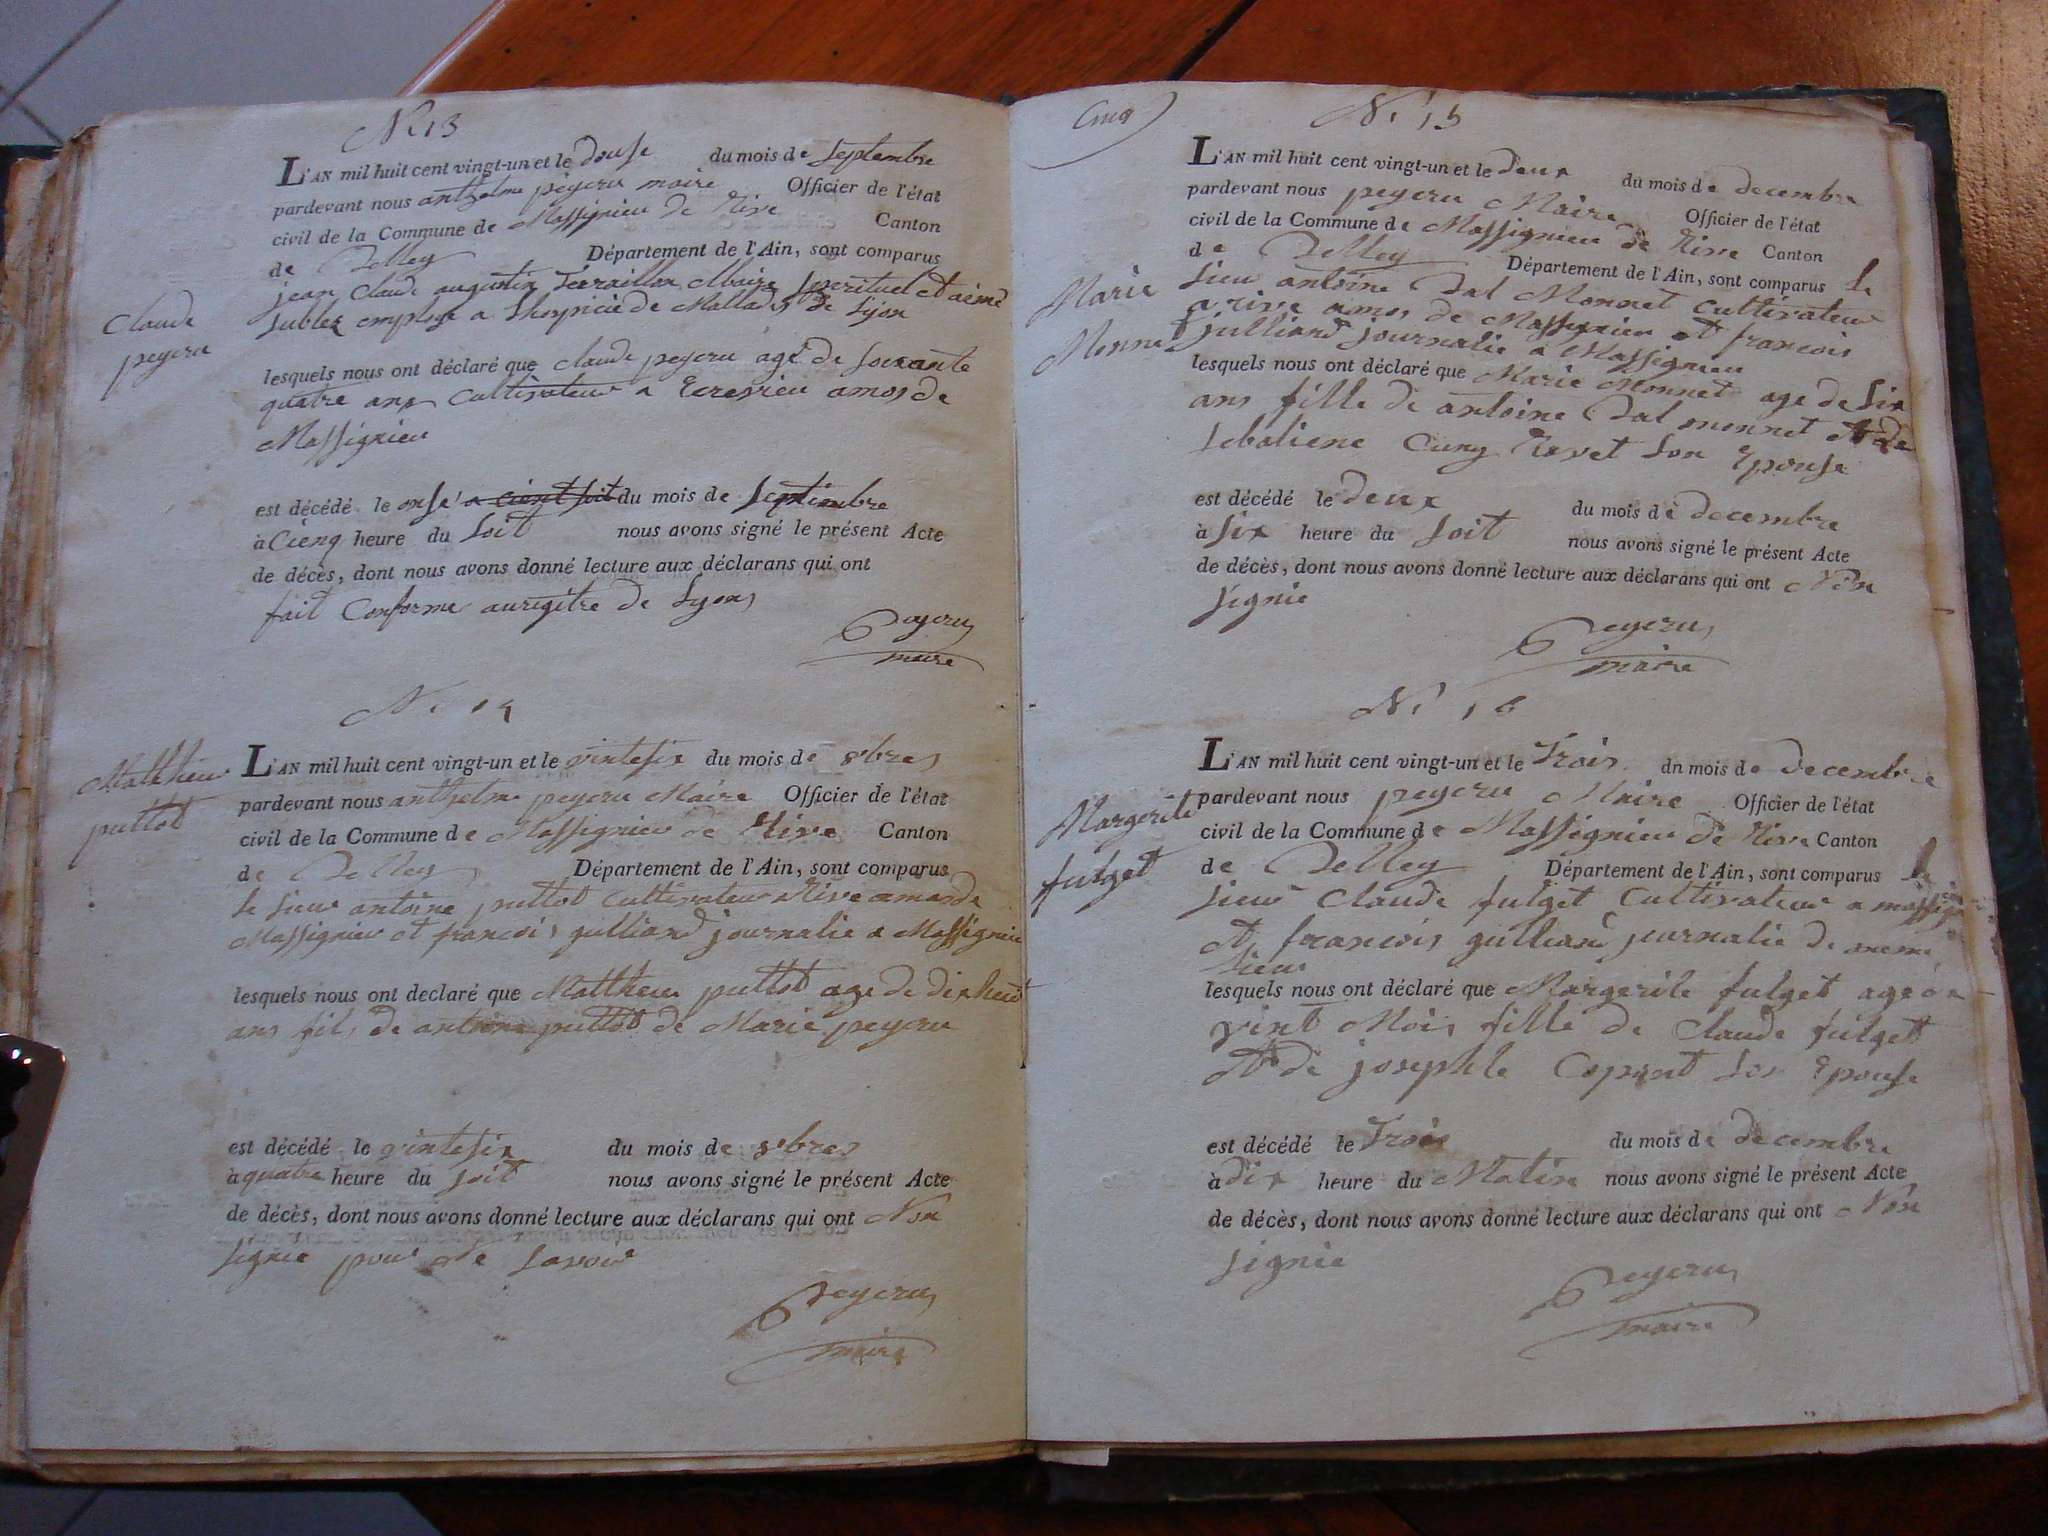 N. 13
L'AN mil huit cent vingt-un et le douse du mois de septembre
pardevant nous anthelme peyeru maire Officier de l'état
civil de la Commune de Massignieu de Rive Canton
de Belley Département de l'Ain, sont comparus
jean Claude augustin Terraillon et aimé
employe a de Mallades de Lyon
Claude
peyeru
lesquels nous ont déclaré que Claude peyeru agé de soixante
quatre ans Cultivateur a Ecrevieu amos de
Massignieu
est décédé le onse du mois de Septimbre
à Cienq heure du Soit nous avons signé le présent Acte
de décès, dont nous avons donné lecture aux déclarans qui ont
fait Conforme auregitre de Lyon
Peyeru
maire
N. 14
Matthieu
puttot
L'AN mil huit cent vingt-un et le vintesix du mois de 8bres
pardevant nous anthelme peyeru Maire Officier de l'état
civil de la Commune de Massignieu de Rive Canton
de Belley Département de l'Ain, sont comparus
le sieur antoine puttot Cultivateur a Rive amos de
Massignieu et francois julliand journalie a Massignieu
lesquels nous ont declaré que Matthieu puttot age de dixhuit
ans fils de antoine puttot de Marie peyeru
est décédé le vintesix du mois de 8bres
à quatre heure du soit nous avons signé le présent Acte
de décès, dont nous avons donné lecture aux déclarans qui ont Non
signie pour ne savoir
Peyeru
maire
Cinq
N. 15
L'AN mil huit cent vingt-un et le deux du mois de decembre
pardevant nous peyeru Maire Officier de l'état
civil de la Commune de Massignieu de Rive Canton
de Belley Département de l'Ain, sont comparus le
Marie
Monnet
sieur antoine Dal Monnet Cultivateur
a rive amos de Massignieu et francois
julliand journalie a Massignieu
lesquels nous ont déclaré que Marie Monnet age de six
ans fille de antoine Dal monnet et de
Ravet son Epouse
est décédé le deux du mois de decembre
à six heure du soit nous avons signé le présent Acte
de décès, dont nous avons donné lecture aux déclarans qui ont Non
signie
Peyeru
maire
N. 16
L'AN mil huit cent vingt-un et le Trois dn mois de decembre
pardevant nous peyeru Maire Officier de l'état
civil de la Commune de Massignieu de Rive Canton
de Belley Département de l'Ain, sont comparus le
Margerite
fulget
sieur Claude fulget Cultivateur a massignieu
et francois julliand journalie de meme
lieu
lesquels nous ont déclaré que Margerite fulget age de
vint Mois fille de Claude fulget
et de josephte Copont son Epouse
est décédé le Trois du mois de decembre
à dix heure du Matin nous avons signé le présent Acte
de décès, dont nous avons donné lecture aux déclarans qui ont Non
signie
Peyeru
maire